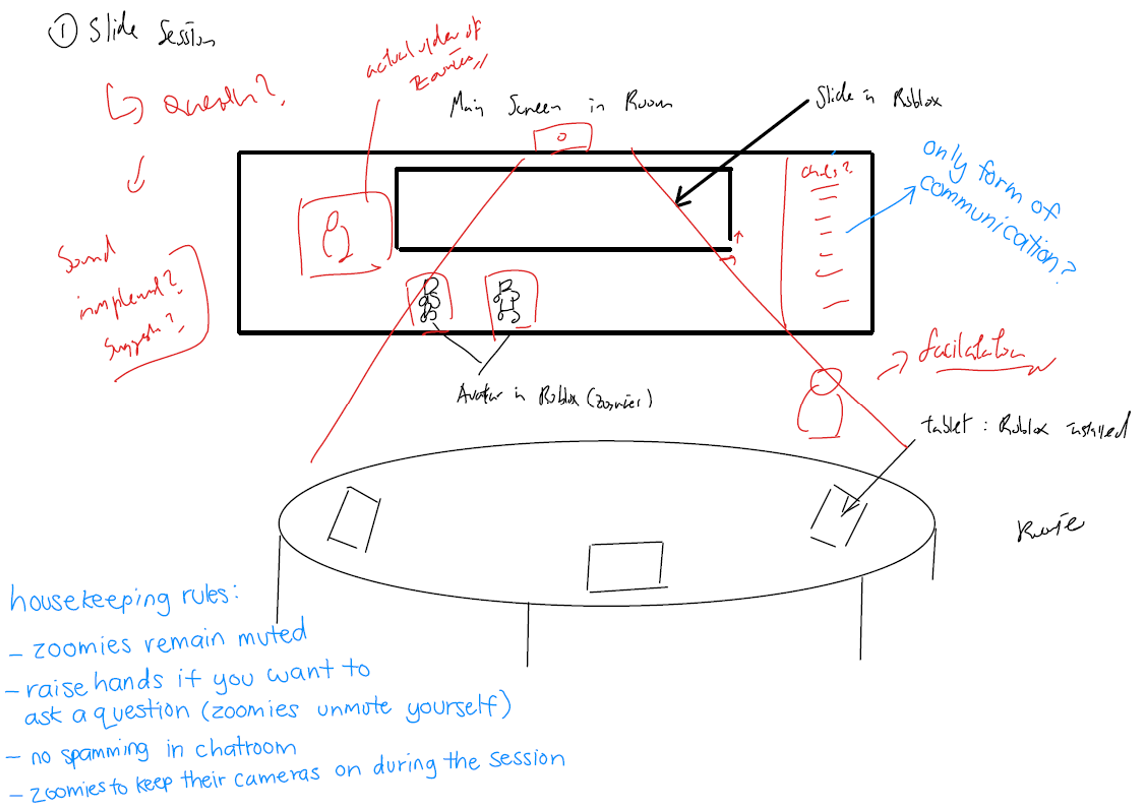 ① Slide Session
↳ Question?
Sound
implement?
Suggest?
actual video of
Zoomies
Main Screen in Room
Slide in Roblox
chats?
only form of
communication?
Avatar in Roblox (zoomies)
facilitator
tablet : Roblox installed
housekeeping rules:
- zoomies remain muted
- raise hands if you want to
ask a question (zoomies unmute yourself)
- no spamming in chatroom
- zoomies to keep their cameras on during the session